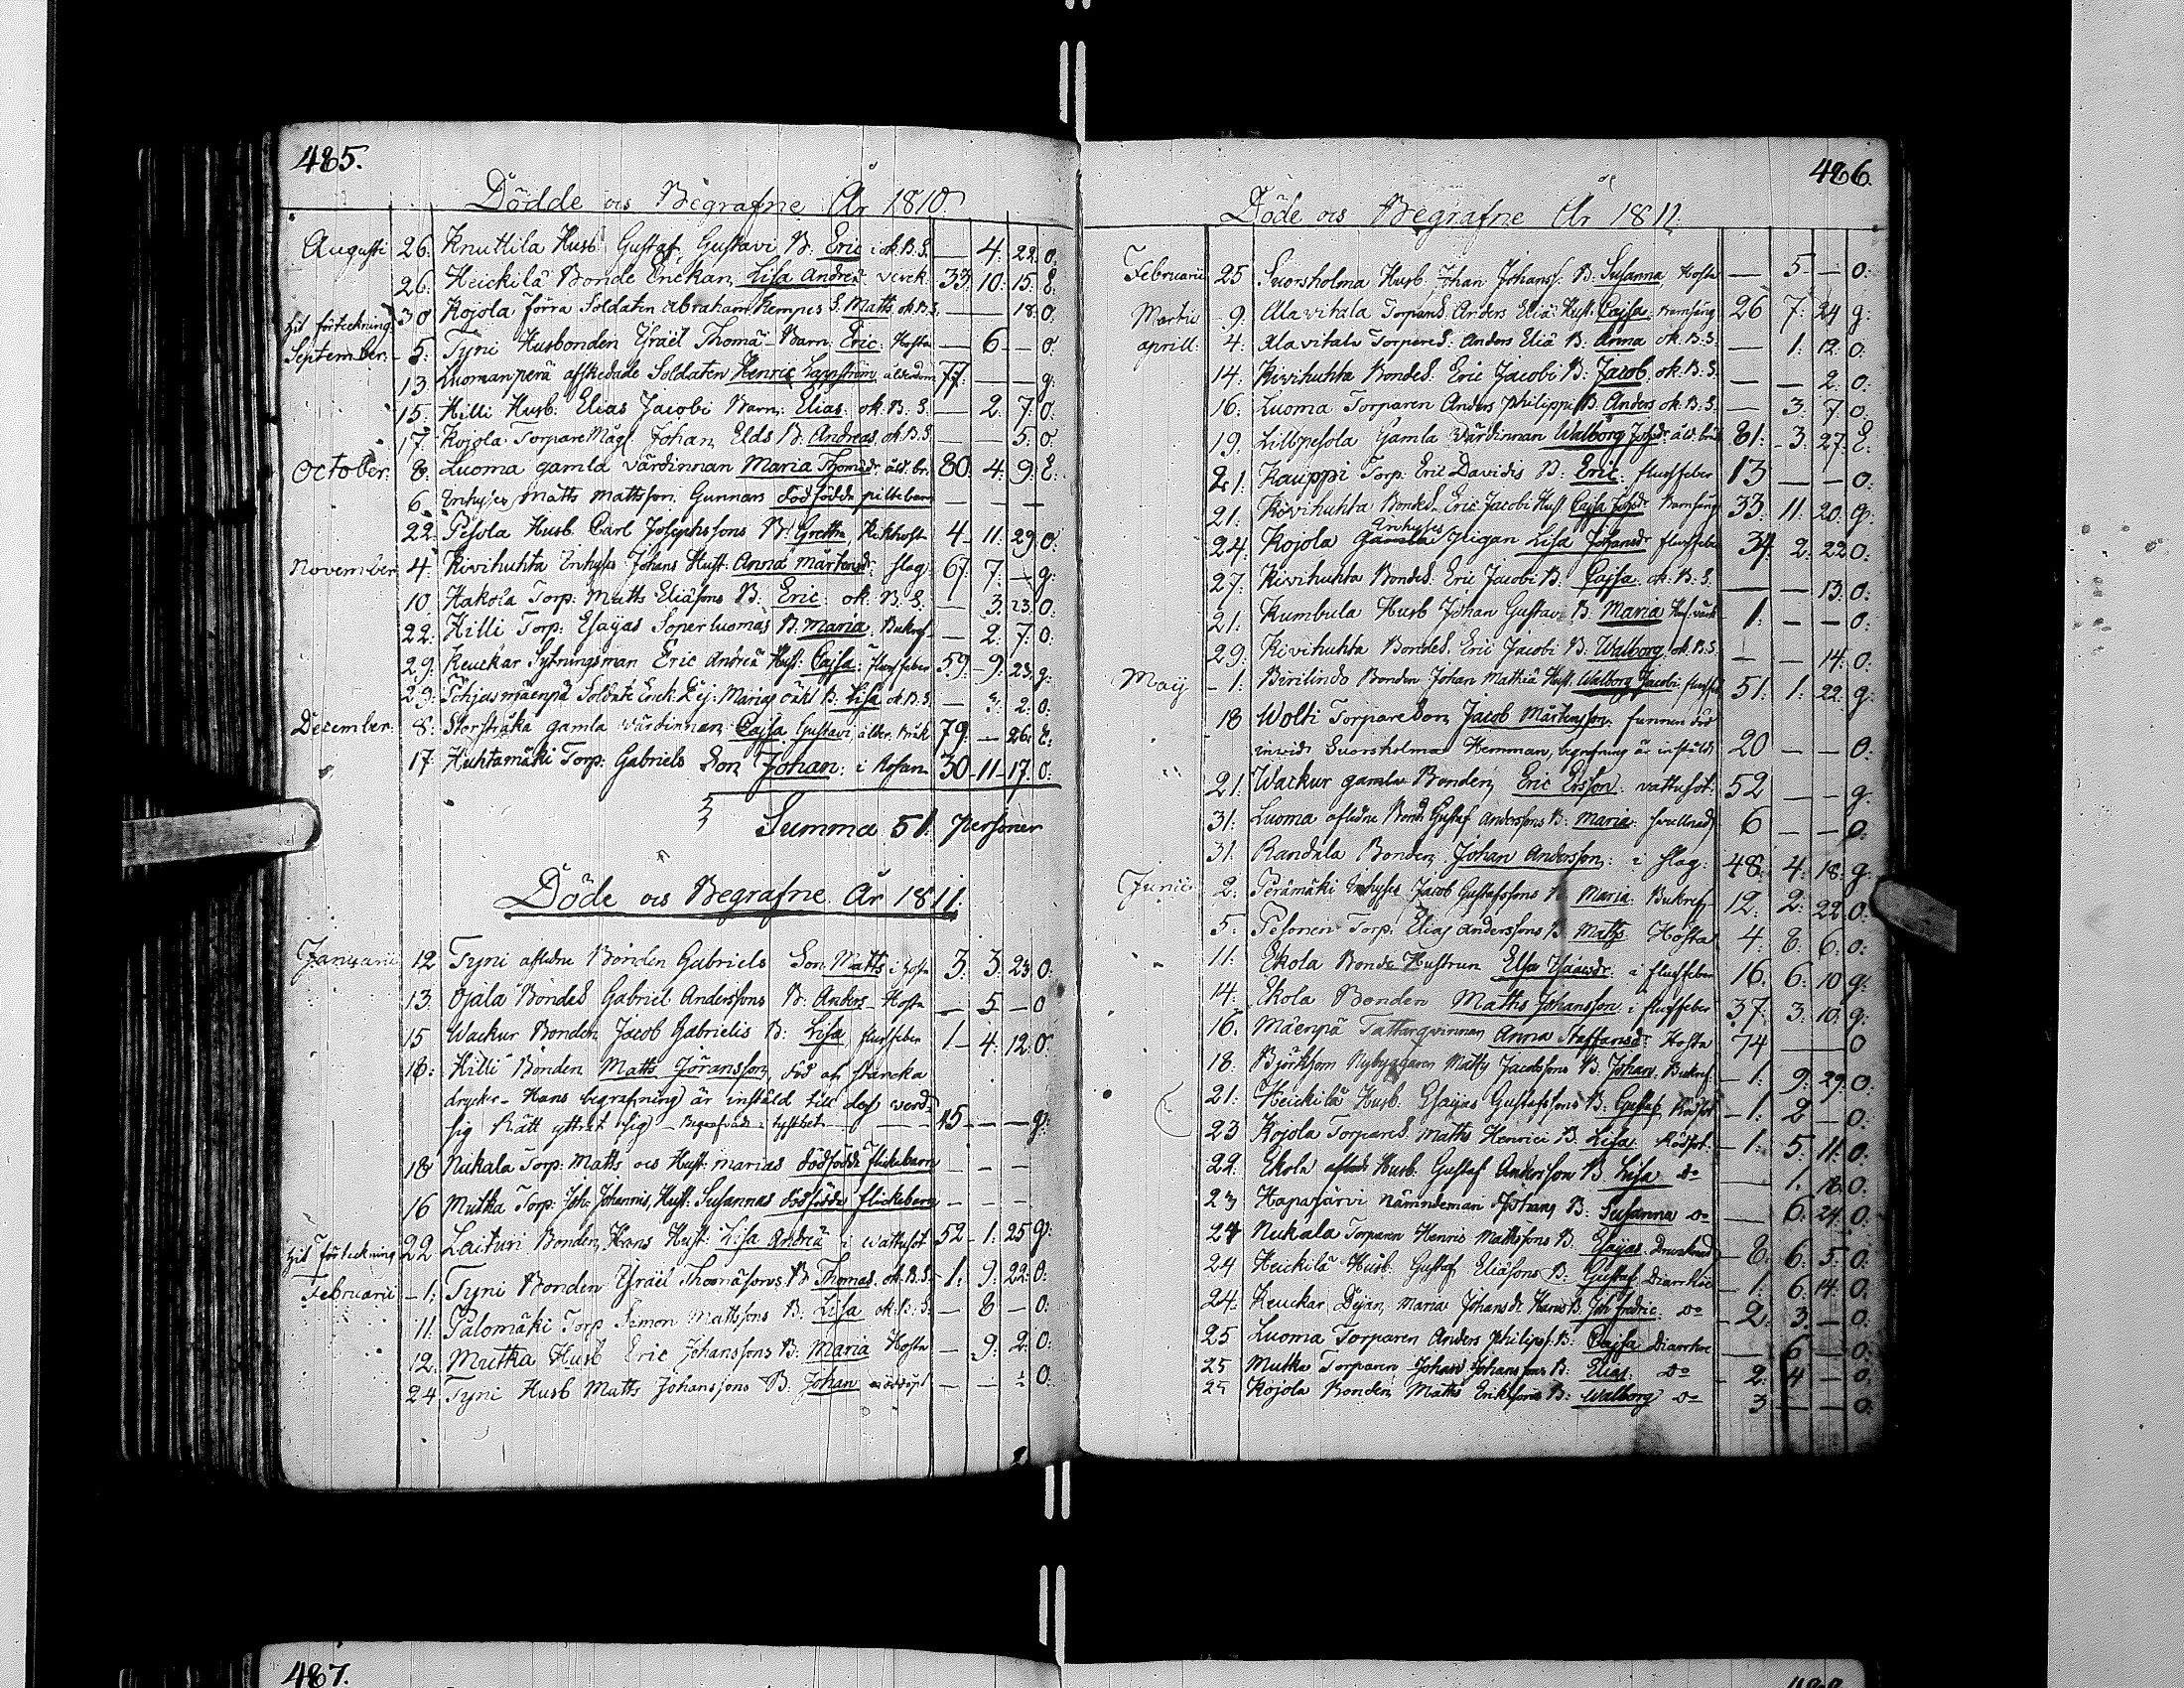 485.
Dödde och Begrafne År 1810
Augusti 26. Knuttila Husb. Gustaf Gustavi B: Eric i ok. B. S. — 4: 22. o.
26. Heickilä Bonde Enckan Lisa Andreä verck. 33: 10: 15: E.
30 Kojola förra Soldaten Abraham Kempes S. Matts ok. B. S. — — 18. o.
til förteckning
September: 5: Tyni Husbonden Israël Thomä Barn: Eric: Hosta — 6 — o.
13 Luomanperä afskedade Soldaten Henric Lappström ålderdom 77: — — g.
15. Hilli Husb: Elias Jacobi Barn: Elias: ok. B. S. — 2 7: o.
17. Kojola Torpare Mågs Johan Elds B: Andreas. ok. B. S. — — 5. o.
October: 8: Luoma gamla värdinnan Maria Thomädr. åld. br. 80. 4: 9: E.
6. Inhyses Matts Mattsson Gunnars dödfödda piltebarn — — —
22. Pesola Husb. Carl Josephssons B: Gretha Kikhosta 4 - 11: 29. o.
November 4: Kivihuhta Inhyses Johans Hust: Anna Mårtensdr. slag: 67: 7: — g:
10. Hakola Torp: Matts Eliäsons B: Eric: ok. B. S. — 3. 23. o.
22. Hilli Torp: Esaijas Soperluomas B: Maria. Bukref — 2: 7: o:
29. Keuckar Sytningsman Eric Andreä Hust: Cajsa: flussfeber 59. 9: 23. g:
29: Pohjasmäenpä Soldate Enck. Pij. Marias B: Lisa ok. B. S. — 2: o.
December: 8: Storstråka gamla värdinnan Cajsa Gustavi, ålder. bräk 79. — 26. E.
17. Huhtamäki Torp: Gabriels Son Johan: i Rosen 30 - 11 - 17. o.
Summa 51. Personer
Döde och Begrafne År 1811.
Januarii 12 Tyni afledne Bonden Gabriels Son Matts i hosta 3. 3. 23 o.
13. Ojala Bondes Gabriel Anderssons B: Anders - Hosta — 5 — o
15 Wackur Bonden Jacob Gabrielis B: Lisa flussfeber 1 - 4: 12. o.
18: Hilli Bonden Matts Jöransson, död af starcka
drycker - Hans begrafning är instäld till dess werds-
lig Rätt yttrat sig - Begrafvades i tysthet — 45 — — g:
18 Nukala Torp: Matts och Hust: Marias dödfödde flickebarn — — —
16 Mutka Torp: Joh: Johannis Hust: Susannas dödfödde flickebarn — — —
til förteckning 22 Laituri Bonden Hans Hust: Lisa Andreä i wattusot 52 - 1: 25 g:
Februarii - 1: Tyni Bonden Israël Thomäsons B: Thomas. ok. B. S. - 1: 9: 22: o.
11: Palomäki Torp Simon Mattssons B: Lisa ok. B. S. — 8 — o.
12. Mutka Husb Eric Johanssons B: Maria Hosta — 9: 2: o.
24 Tyni Husb Matts Johanssons B: Johan — — o.
486.
Döde och Begrafne År 1811.
Februarii 25 Suorsholma Husb: Johan Johanss: B: Susanna Hosta — 5 — o:
Martii 9: Alavitala Torpares Anders Eliä Hust: Cajsa. Barnsäng 26 7: 24 g:
aprill: 4: Alavitala Torpares: Anders Eliä B: Anna ok. B. S. — 1: 12: o:
14: Kivihuhta Bondes: Eric Jacobi B: Jacob. ok. B. S. — — 2: o:
16. Luoma Torparen Anders Philippi B: Anders ok. B. S. — 3: 7: o:
19. Lillpesola Gamla Värdinnan Walborg Johsdr. åld. bräk 81: 3: 27: E.
21. Kauppi Torp: Eric Davidis B: Eric: flussfeber 13 — — o:
21. Kivihuhta Bondes Eric Jacobi Hust. Cajsa Johsdr. Barnsäng 33: 11: 20: g:
24. Kojola Gamla Inhyses Pigan Lisa Johansdr. flussfeber 34: 2: 22 o:
27. Kivihuhta Bondes: Eric Jacobi B: Cajsa ok. B. S. — — 13: o:
21: Kumbula Husb Johan Gustavi B: Maria 1: — — o:
29: Kivihuhta Bondes. Eric Jacobi B: Walborg ok. B. S. — — 14: o:
Maij - 1: Birilindo Bonden Johan Mathiä Hust. Walborg Jacobi. flussfeb 51: 1: 22: g:
18 Wolti Torpare Son Jacob Mårtensson: funnen död
invid Suorsholmas Hemman, begrafning är instäld 20 — — o:
21. Wackur gamla Bonden Eric Ersson. vattusot. 52 — — g.
31: Luoma afledne Bond. Gustaf Anderssons B: Maria: svullnad 6 — — o:
31. Randala Bonden Johan Andersson: i slag: 48: 4: 18: g:
Junii 2. Perämäki Inhyses Jacob Gustafssons B: Maria. Bukref 12. 2: 22: o:
5. Pesonen Torp. Elias Anderssons B: Matts Hosta 4 8. 6: o:
11. Ekola Bonde Hustrun Elsa Isaacsdr. i flussfeber 16. 6: 10 g:
14: Ekola Bonden Matts Johansson. i flussfeber 37: 3: 10: g:
16. Mäenpä Tattarqvinnan Anna Staffansd: Hosta 74 — — o
18. Björkbom Nybyggaren Matts Jacobssons B: Johan. Bukref - 1: 9: 29: o.
21: Heickilä Husb. Esaijas Gustafssons B: Gustaf. Rödsot - 1: 2 — o:
23 Kojola Torpares Matts Henrici B. Lisa. Rödsot. - 1: 5: 11: o.
22. Ekola afled: Husb. Gustaf Andersson B. Lisa Do — 1. 18: o:
23 Haparjärvi Nämndeman Johans B: Susanna Do — 6. 24: o:
24 Nukala Torparen Henric Mattssons B: Esaijas. Drunknad 8: 6: 5: o:
24 Heickilä Husb. Gustaf Eliäsons B: Gustaf Diarrhée - 1: 6: 14: o.
24. Keuckar Pijan Maria Johansdr. B. Joh fredric: Do - 2. 3. — o.
25 Luoma Torparen Anders Philips: B: Cajsa Diarrhoe — 6 — o.
25 Mutka Torparen Johan Johanssons B: Elias. Do - 2. 4 — o:
25 Kojola Bonden Matts Erikssons B: Walborg Do 3 — — o:
487.
488